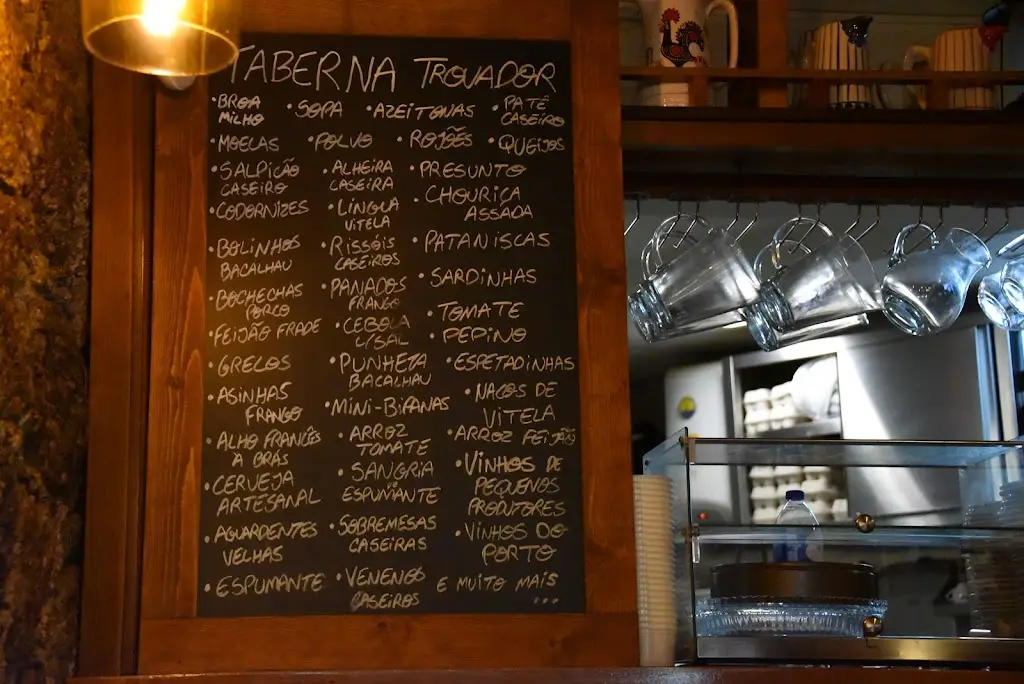 TABERNA TROVADOR
• BROA MILHO • SOPA • AZEITONAS • PATÊ CASEIRO
• MOELAS • POLVO • ROJÕES • QUEIJOS
• SALPICÃO CASEIRO • ALHEIRA CASEIRA • PRESUNTO
• CODORNIZES • LÍNGUA VITELA • CHOURIÇA ASSADA
• BOLINHOS BACALHAU • RISSÓIS CASEIROS • PATANISCAS
• BOCHECHAS PORCO • PANADOS FRANGO • SARDINHAS
• FEIJÃO FRADE • CEBOLA C/SAL • TOMATE PEPINO
• GRELOS • PUNHETA BACALHAU • ESPETADINHAS
• ASINHAS FRANGO • MINI-BIFANAS • NACOS DE VITELA
• ALHO FRANCÊS À BRÁS • ARROZ TOMATE • ARROZ FEIJÃO
• CERVEJA ARTESANAL • SANGRIA DE ESPUMANTE • VINHOS DE PEQUENOS PRODUTORES
• AGUARDENTES VELHAS • SOBREMESAS CASEIRAS • VINHOS DO PORTO
• ESPUMANTE • VENENOS CASEIROS E MUITO MAIS ...